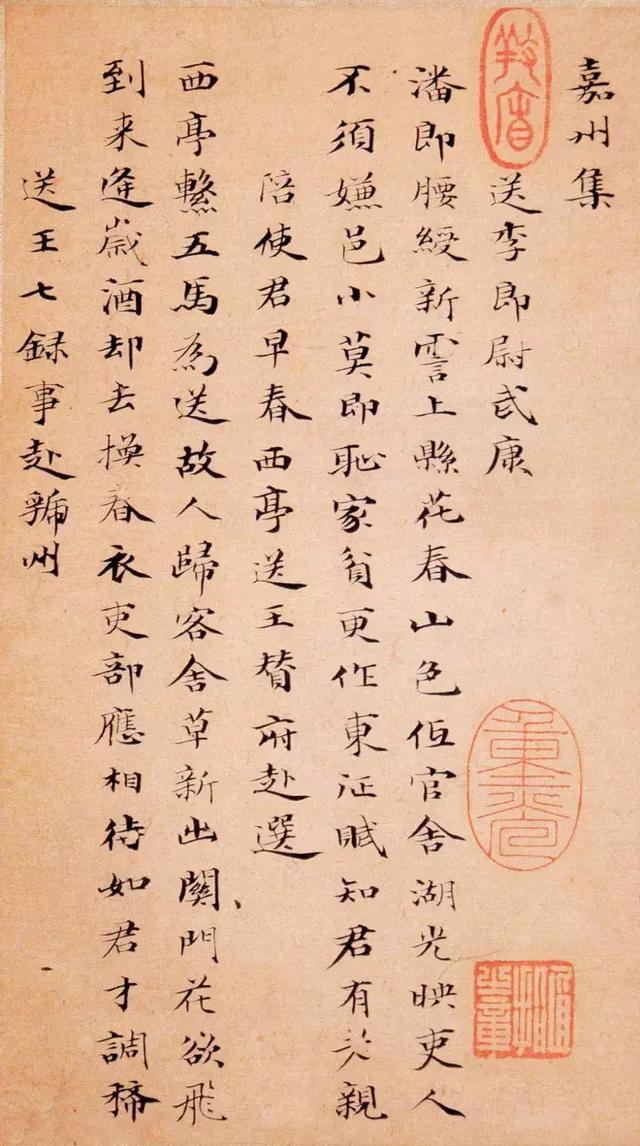 嘉州集
送李郎尉武康
潘郎腰綬新霅上縣花春山色低官舍湖光映吏人
不須嫌邑小莫即恥家貧更作東征賦知君有老親
陪使君早春西亭送王贊府赴選
西亭繫五馬為送故人歸客舍草新出關門花欲飛
到来逢歲酒却去換春衣吏部應相待如君才調稀
送王七録事赴虢州